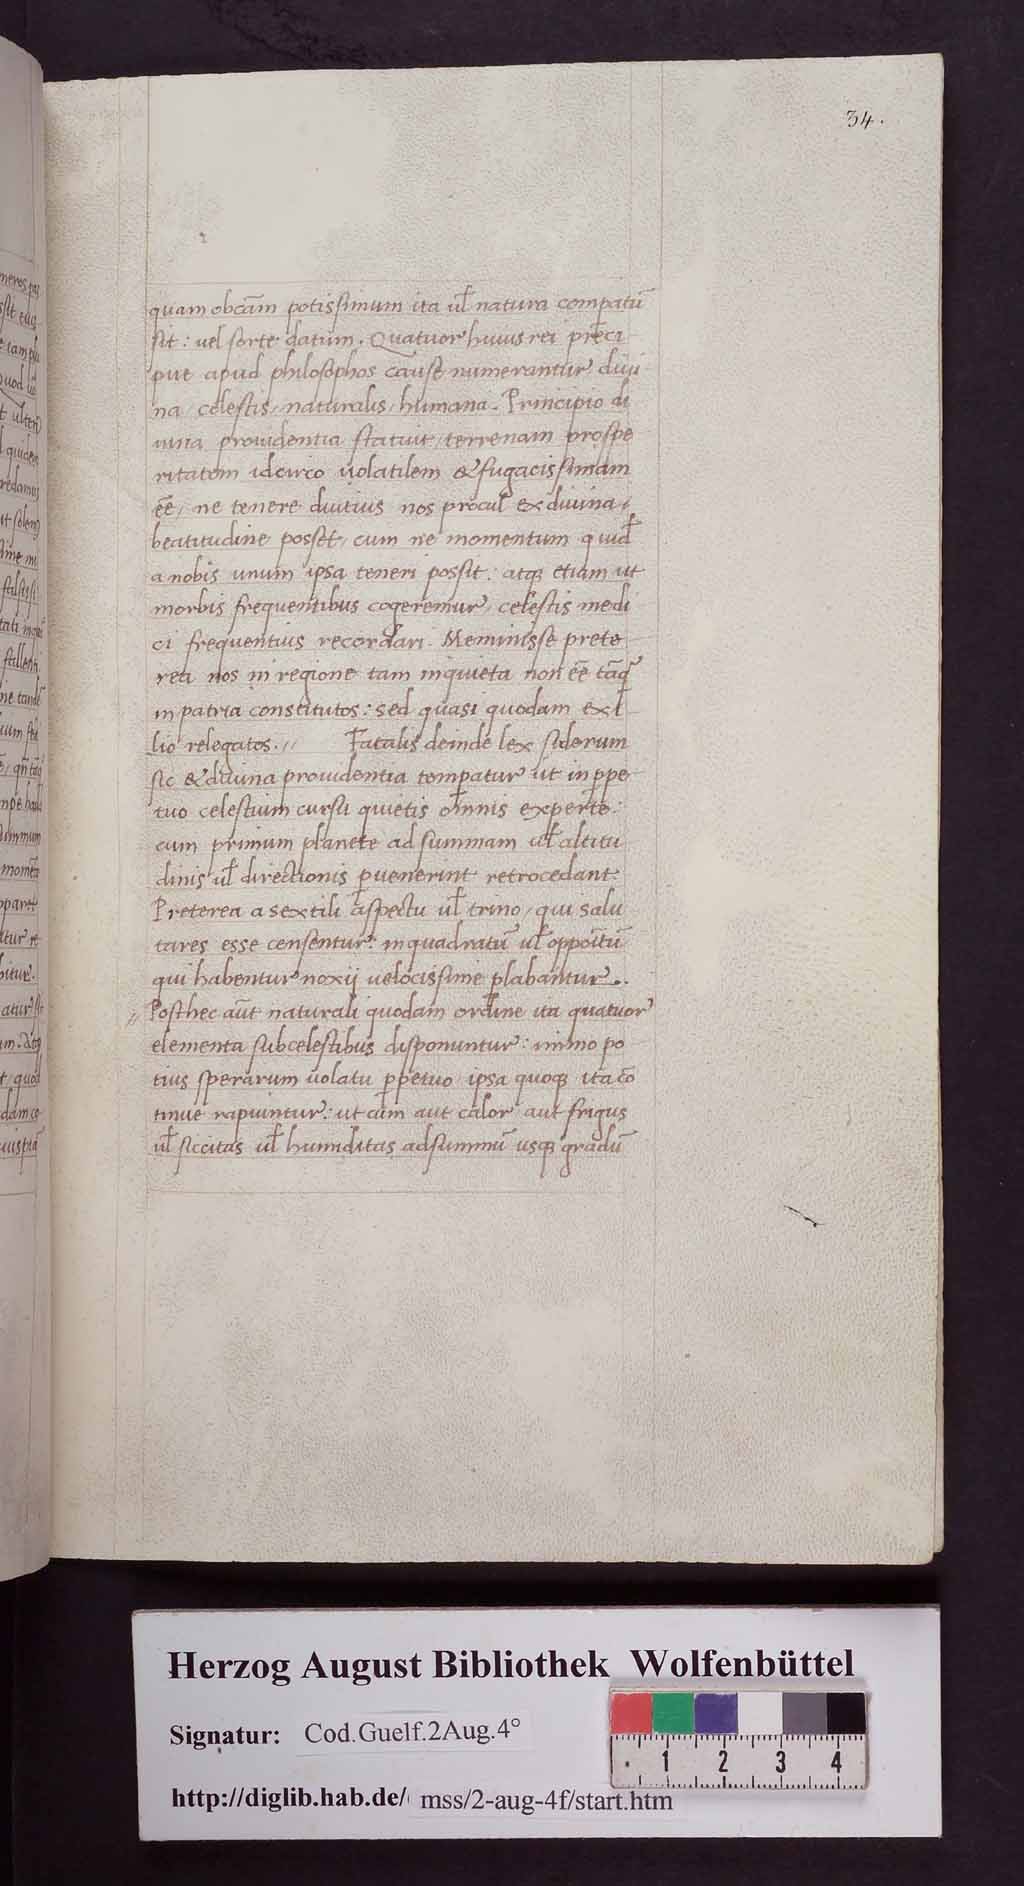 34.
quam obcām potissimum ita ul̄ natura compatū
sit: uel sorte datum. Quatuor huius rei preci
pue apud philosophos cause numerantur diui
na / celestis / naturalis / humana. Principio di
uina prouidentia statuit / terrenam prospe
ritatem idcirco uolatilem & fugacissimam
eē / ne tenere diutius nos procul ex diuina /
beatitudine posset / cum ne momentum quid̄
a nobis unum ipsa teneri possit: atq; etiam ut
morbis frequentibus cogeremur / celestis medi
ci frequentius recordari. Meminisse prete
rea nos in regione tam inquieta non eē tāq̄
in patria constitutos: sed quasi quodam exi
lio relegatos. // Fatalis deinde lex siderum
sic & diuina prouidentia tempatur ut in ppe
tuo celestium cursu quietis om̄nis experte:
cum primum planete ad summam ul̄ altitu
dinis ul̄ directionis puenerint retrocedant
Preterea a sextili aspectu ul̄ trino / qui salu
tares esse censentur: in quadratū ul̄ oppoītū
qui habentur noxij uelocissime plabantur.
// Posthec aūt naturali quodam ordine ita quatuor
elementa subcelestibus disponuntur: immo po
tius sperarum uolatu ppetuo ipsa quoq; ita cō
tinue rapiuntur: ut cūm aut calor aut frigus
ul̄ siccitas ul̄ humiditas ad summū usq; gradū
Herzog August Bibliothek Wolfenbüttel
Signatur: Cod.Guelf.2Aug.4°
1 2 3 4
http://diglib.hab.de/ mss/2-aug-4f/start.htm